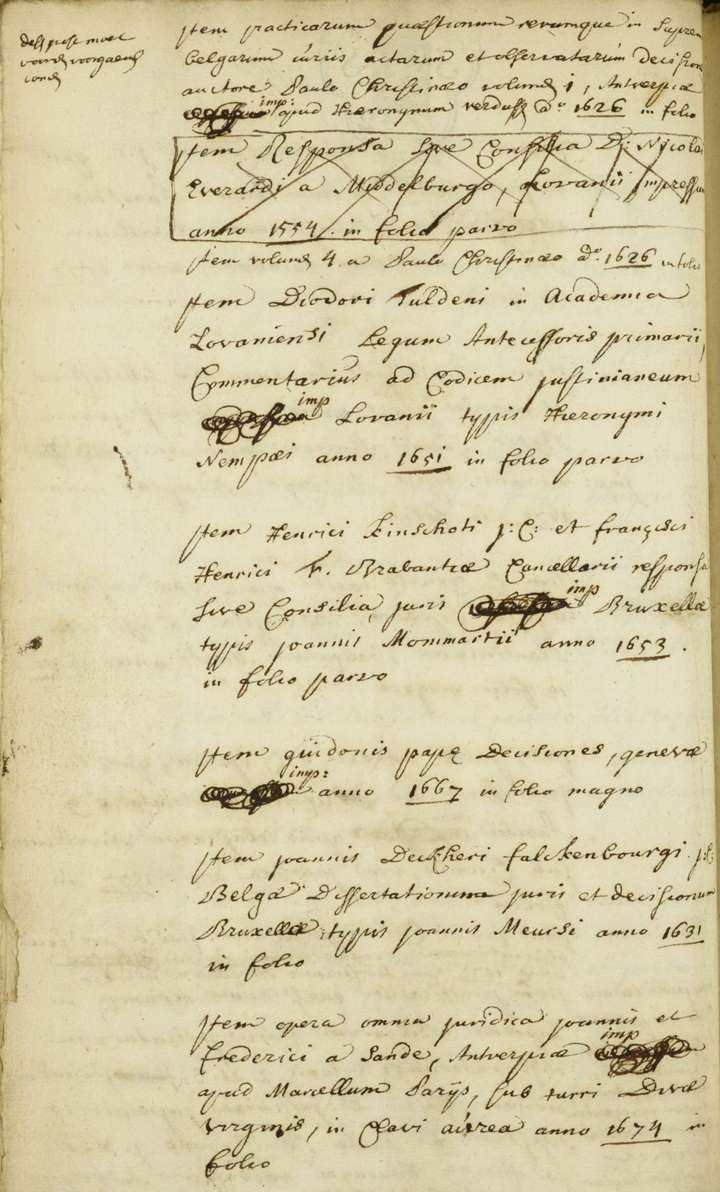 dese post moet
voor
Item practicarum quæstionum rerumque in Suprem
belgarum curiis actarum et observatarum decision
auctore Paulo Christinæo volumes 1, Antverpiæ
imp: apud Hieronymum verduss a.o 1626 in folio
Item Responsa Sive Consilia D: Nicolai
Everardi a Middelburgo, Lovanii impressum
anno 1554. in folio parvo
Item volumes 4 a Paulo Christinæo a.o 1626 in folio
Item Diodori Tuldeni in Academia
Lovaniensi Legum Antecessoris primarii,
Commentarius ad Codicem justinianeum
imp Lovanii typis Hieronymi
Nempæi anno 1651 in folio parvo
Item Henrici Kinschoti j: C: et francisci
Henrici F. Brabantiæ Cancellarii responsa
Sive Consilia juris imp Bruxellæ
typis joannis Mommartii anno 1653.
in folio parvo
Item guidonis papę Decisiones, genevæ
imp: anno 1667 in folio magno
Item joannis Deckheri falckenbourgi j: C:
Belgæ Dissertationum juris et decisionum
Bruxellæ typis joannis Meursi anno 1631
in folio
Item opera omnia juridica joannis et
Frederici a Sande, Antverpiæ imp
apud Marcellum Parijs, sub turri Divæ
virginis, in Clavi aurea anno 1674 in
folio